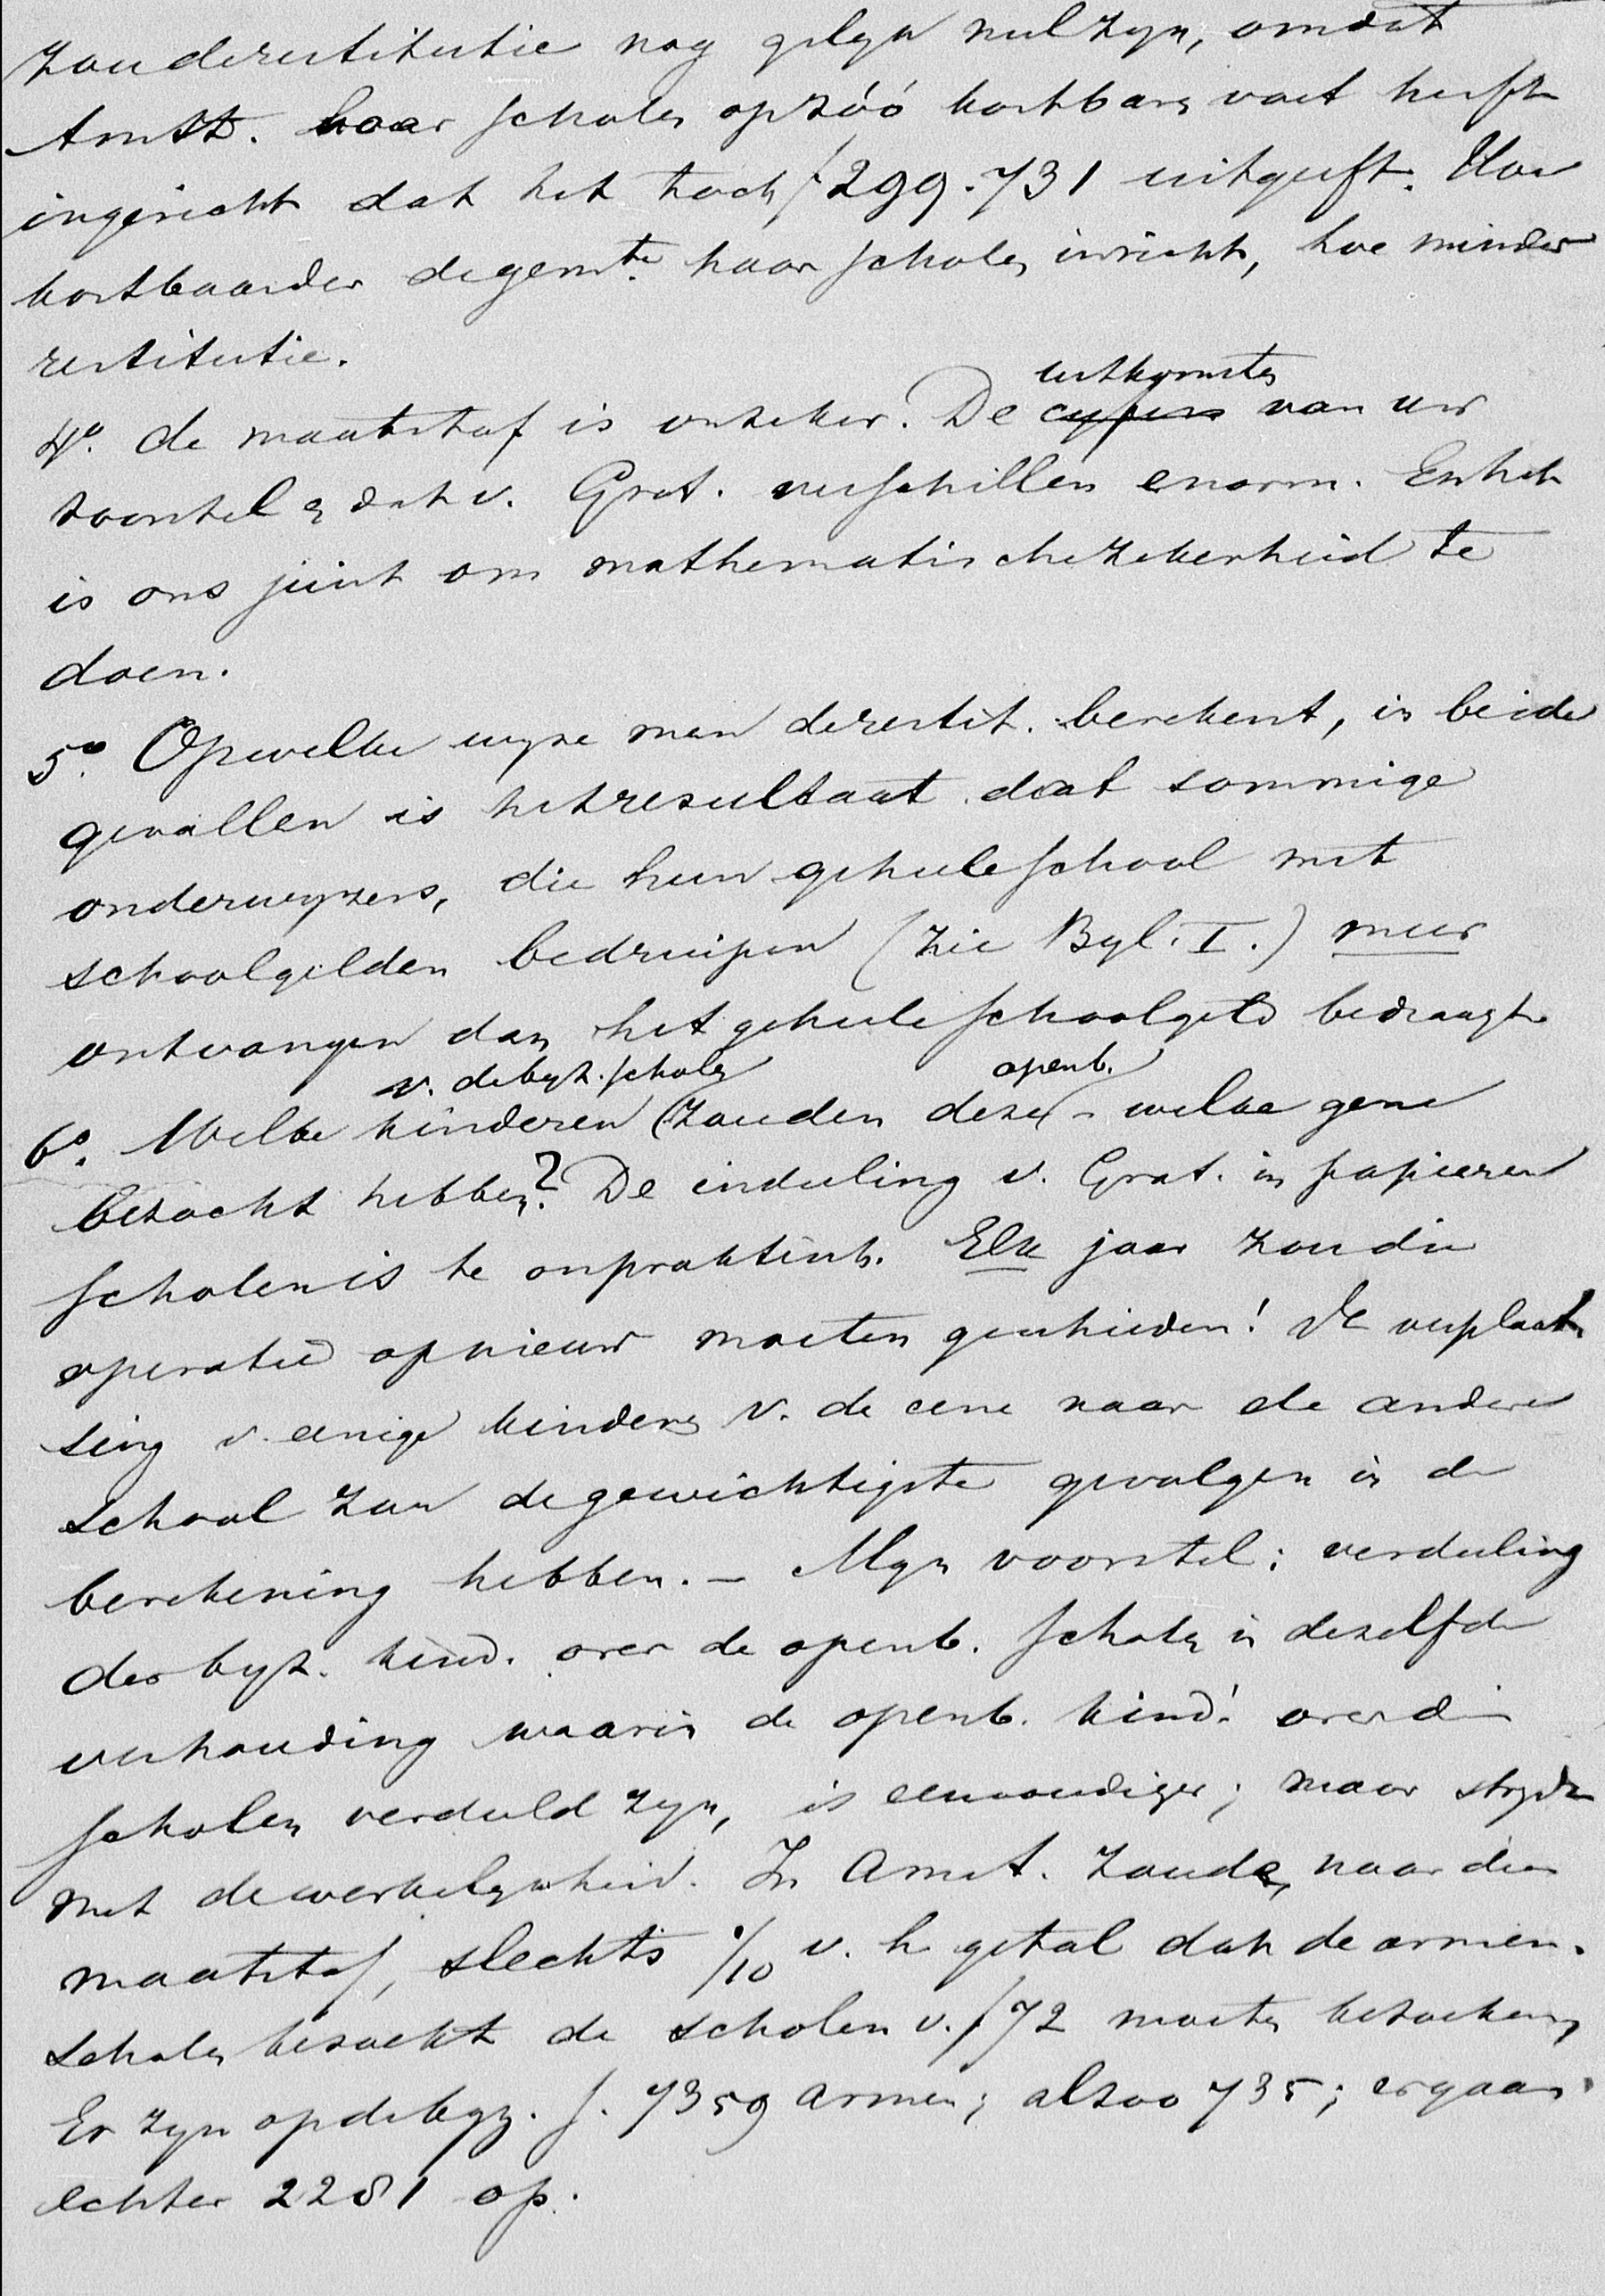 zou de restitutie nog gelyk nul zyn, omdat
Amst. haar scholen op zóó kostbare voet heeft
ingericht dat het toch ƒ299.731 uitgeeft. Hoe
kostbaarder de gemte. haar scholen inricht, hoe minder
restitutie.
uitkomsten
4o. de maatstaf is onzeker. De cyfers van uw
voorstel & dat v. Grat. verschillen enorm. En het
is ons juist om mathematische zekerheid te
doen.
5o. Op welke wyze men de restit. berekent, in beide
gevallen is het resultaat dat sommige
onderwyzers, die hun geheele school met
schoolgelden bedruipen (zie Byl. I.) meer
ontvangen dan het geheele schoolgeld bedraagt
v. de byz. scholen openb.
6o. Welke kinderen (zouden deze - welke gene
bezocht hebben? De indeeling v. Grat. in papieren
scholen is te onpraktisch. Elk jaar zou die
operatie opnieuw moeten geschieden! De verplaat-
sing v. eenige kinderen v. de eene naar de andere
school zou de gewichtigste gevolgen in de
berekening hebben. - Myn voorstel: verdeeling
der byz. kind. over de openb. scholen in dezelfde
verhouding waarin de openb. kind. over die
scholen verdeeld zyn, is eenvoudiger; maar strydt
met de werkelykheid. In Amst. zouden, naar dien
maatstaf, slechts 1/10 v. h. getal dat de armen-
scholen bezoekt de scholen v. ƒ72 moeten bezoeken,
Er zyn op de byz. s. 7359 armen; alzoo 735; er gaan
echter 2281 op.